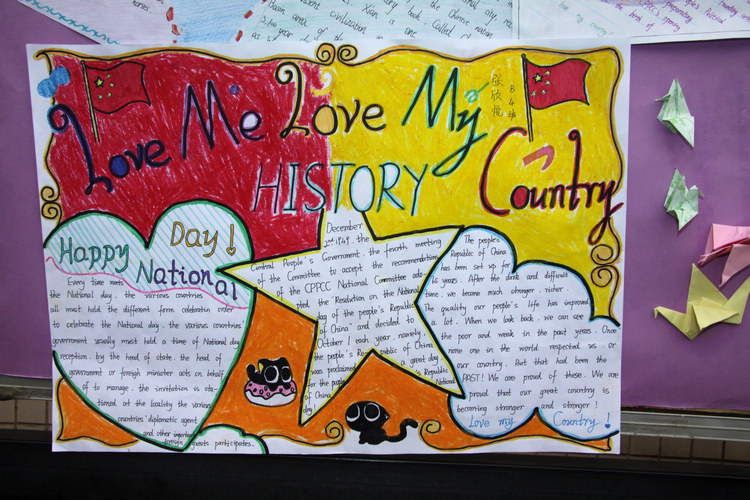 Love Me Love My
Country
HISTORY
张欣悦
Happy
Day!
National
Every time meets
the National day, the various countries
all must hold the different form celebration order
to celebrate the National day. the various countries'
government usually must hold a time of National day
reception. by the head of state. the head of
government or foreign minister acts on behalf
of to manage. the invitation is sta-
tioned at the locality the various
countries' diplomatic agent
and other important
guests participates.
December
2nd.1949. the
Central People's Government. the fourth meeting
of the Committee to accept the recommendation
of the CPPCC National Committee ado-
pted the Resolution on the National
day of the people's Republic
of China" and decided to
October 1 each year, namely,
the people's Republic of China
was proclaimed a great day
for the people's Republic
National
day.
The people's
Republic of China
has been set up for
years. After the dark and difficult
time. we became much stronger. richer.
The quality our people's life has improved
a lot. When we look back. we can see
the poor and weak in the past years. Once
none one in the world respected us. or
our country. But that had been the
PAST! We are proud of these. We are
proud that our great country is
becoming stronger and stronger!
Love my Country!